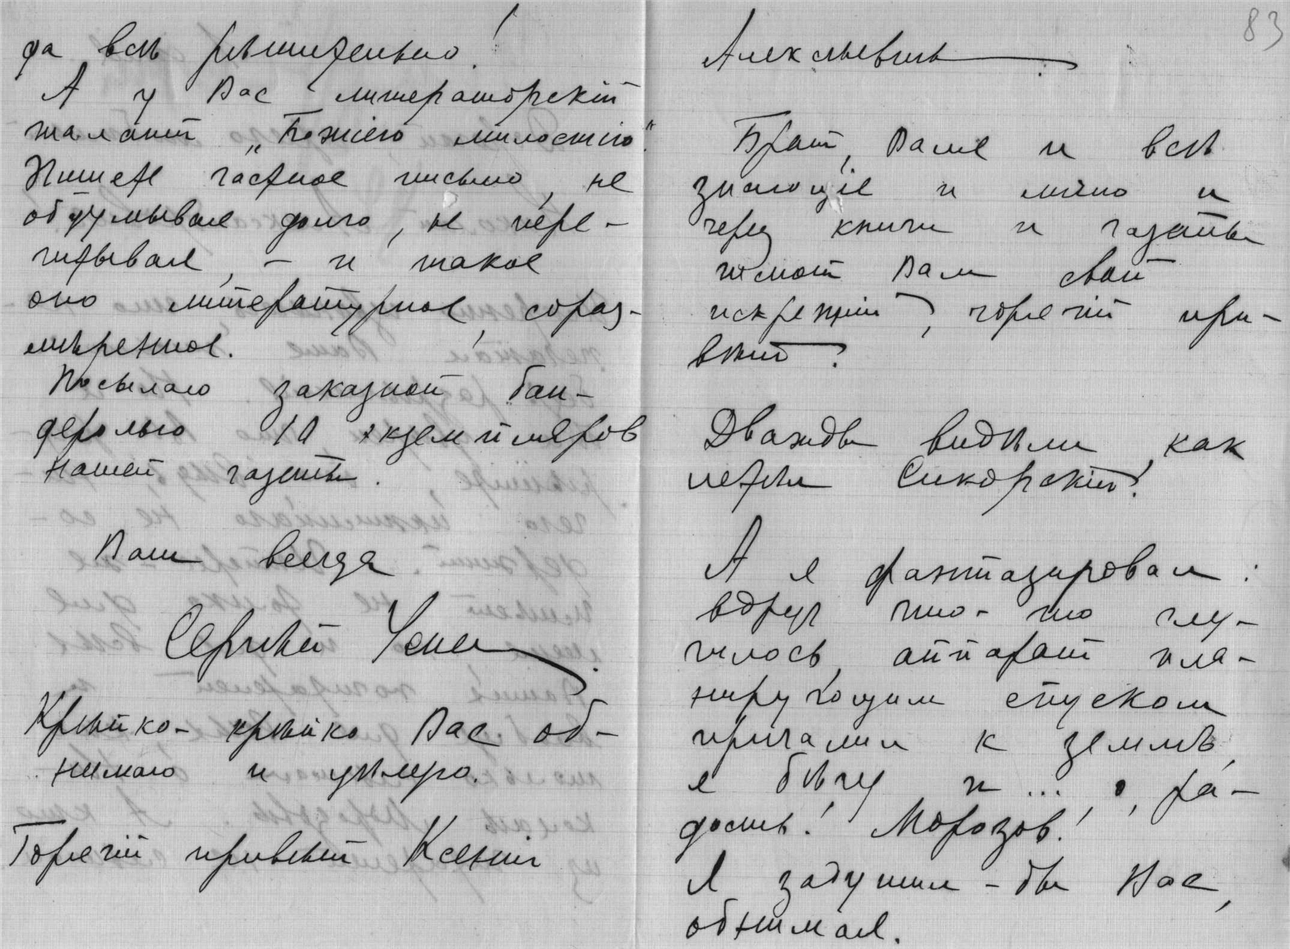 да всѣ рѣшительно!
А у Вас литераторскій
талант „Божіею милостію“.
Пишете частное письмо, не
обдумывая долго, не пере-
читывая, – и такое
оно литературное, сораз-
мѣренное.
Посылаю заказной бан-
деролью 10 экземпляров
нашей газеты.
Ваш всегда
Сергѣй
Крѣпко-крѣпко Вас об-
нимаю и цѣлую.
Горячій привѣт Ксеніи
83
Алексѣевнѣ
Брат, Валя и всѣ
знающіе и лично и
через книги и газеты
шлют Вам свой
искренній, горячій при-
вѣт!
Дважды видѣли, как
летѣл Сикорскій!
А я фантазировал:
вдруг что-то слу-
чилось, аппарат пла-
нирующим спуском
причалил к землѣ,
я бѣгу и ..., ра-
дость! Морозов!
Я задушил-бы Вас,
обнимая.